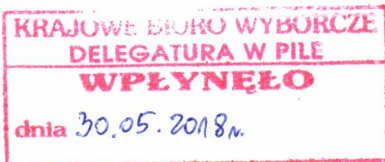 KRAJOWE BIURO WYBORCZE
DELEGATURA W PILE
WPŁYNĘŁO
dnia 30.05.2018r.